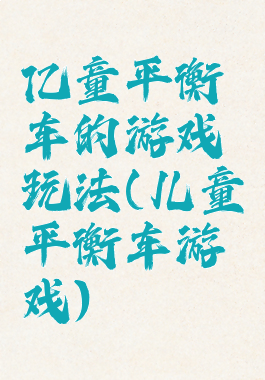 亿童平衡
车的游戏
玩法(儿童
平衡车游
戏)